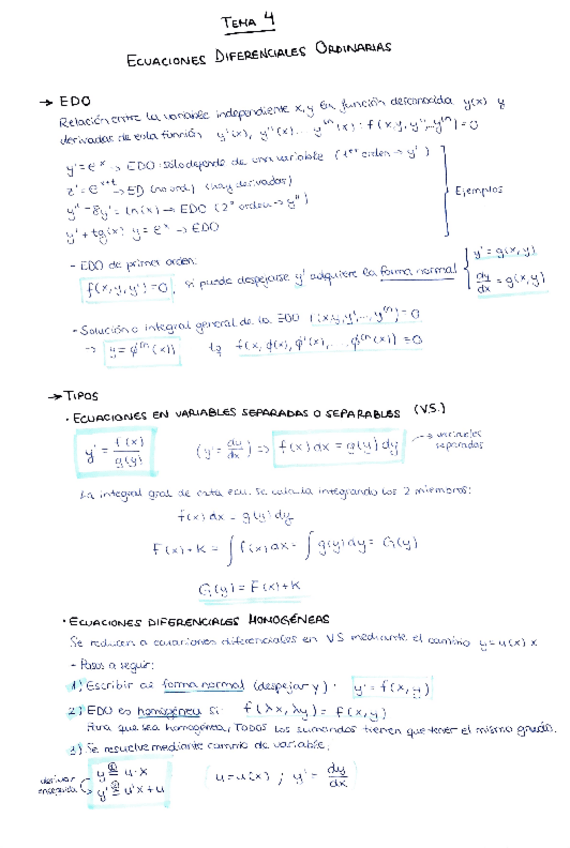 TEMA 4
ECUACIONES DIFERENCIALES ORDINARIAS
→ EDO
Relación entre la variable independiente x, y función desconocida y(x) y
derivadas de esta función y'(x), y''(x)... yⁿ(x): f(x,y,y',...yⁿ)=0
y'=eˣ → EDO: sólo depende de una variable (1er orden → y')
z'=e^(x+t) → ED (no ord.) (hay derivadas)
y''-8y'=ln(x) → EDO (2º orden → y'')
y'+tg(x)·y=eˣ → EDO
Ejemplos
- EDO de primer orden:
f(x,y,y')=0, si puede despejarse y' adquiere la forma normal
y'=g(x,y)
dy/dx = g(x,y)
- Solución o integral general de la EDO f(x,y,y',...,y⁽ⁿ⁾)=0
→ y=φ(x) f(x,φ(x),φ'(x),...φ⁽ⁿ⁾(x))=0
→ TIPOS
· ECUACIONES EN VARIABLES SEPARADAS O SEPARABLES (V.S.)
y' = f(x)/g(y) (y'=dy/dx) ⇒ f(x)dx = g(y)dy → variables separadas
La integral gral de esta ecu. se calcula integrando los 2 miembros:
f(x)dx = g(y)dy
F(x)+K = ∫f(x)dx = ∫g(y)dy = G(y)
G(y)=F(x)+K
· ECUACIONES DIFERENCIALES HOMOGÉNEAS
Se reducen a ecuaciones diferenciales en VS mediante el cambio y=u(x)x
- Pasos a seguir:
1) Escribir de forma normal (despejar y'): y'=f(x,y)
2) EDO es homogénea si: f(λx,λy)=f(x,y)
Para que sea homogénea, TODOS los sumandos tienen que tener el mismo grado.
3) Se resuelve mediante cambio de variable:
derivar enseguida
y ① = u·x
y' ② = u'x+u
u=u(x) ; y'= dy/dx